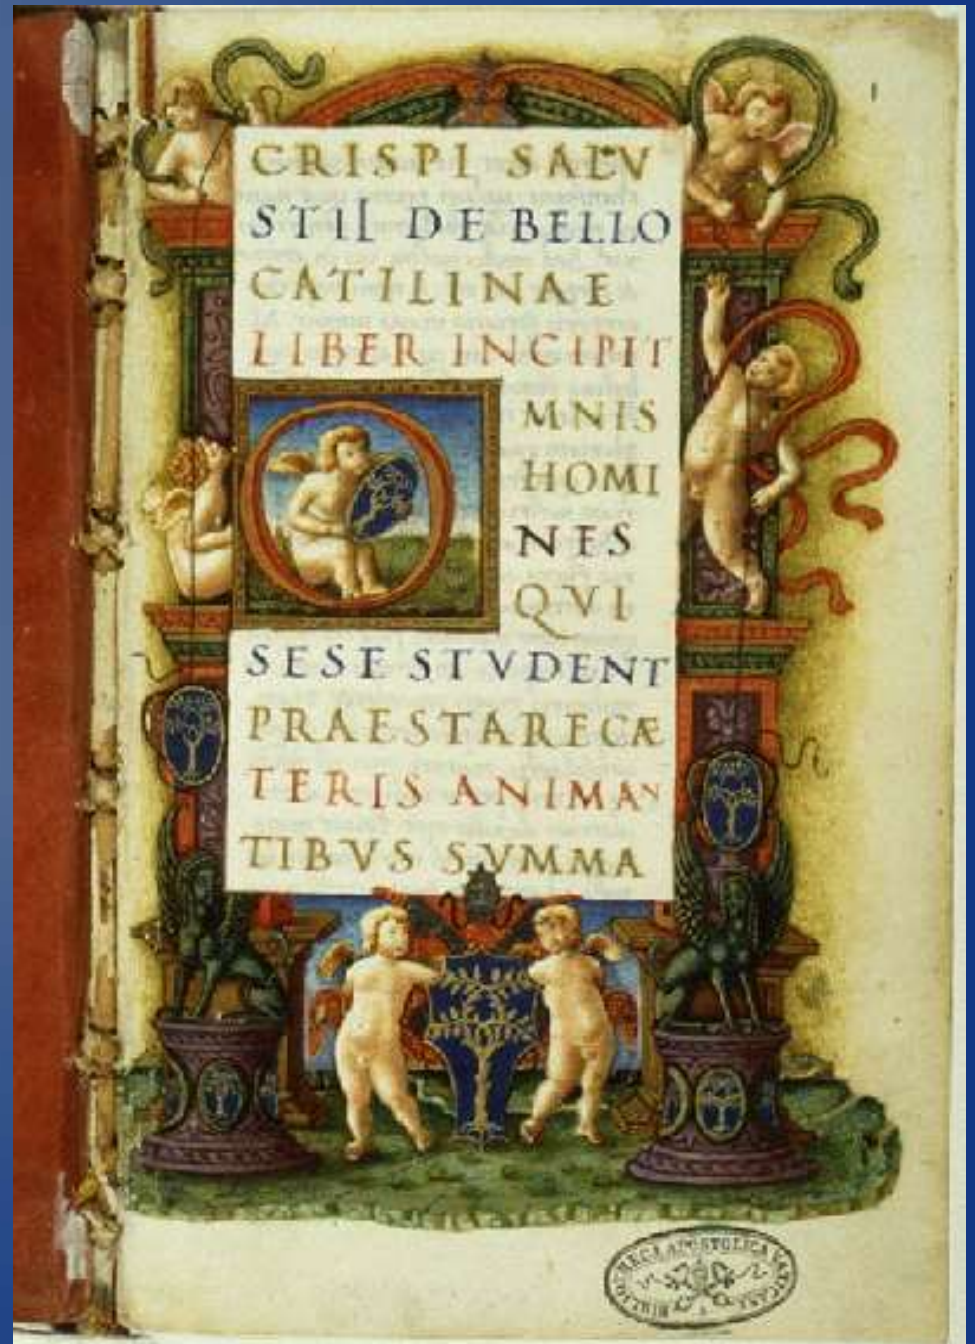 I
CRISPI SALV
STII DE BELLO
CATILINAE
LIBER INCIPIT
OMNIS
HOMI
NES
QVI
SESE STVDENT
PRAESTARECÆ
TERIS ANIMAN
TIBVS SVMMA
BIBLIOTHECA APOSTOLICA VATICANA